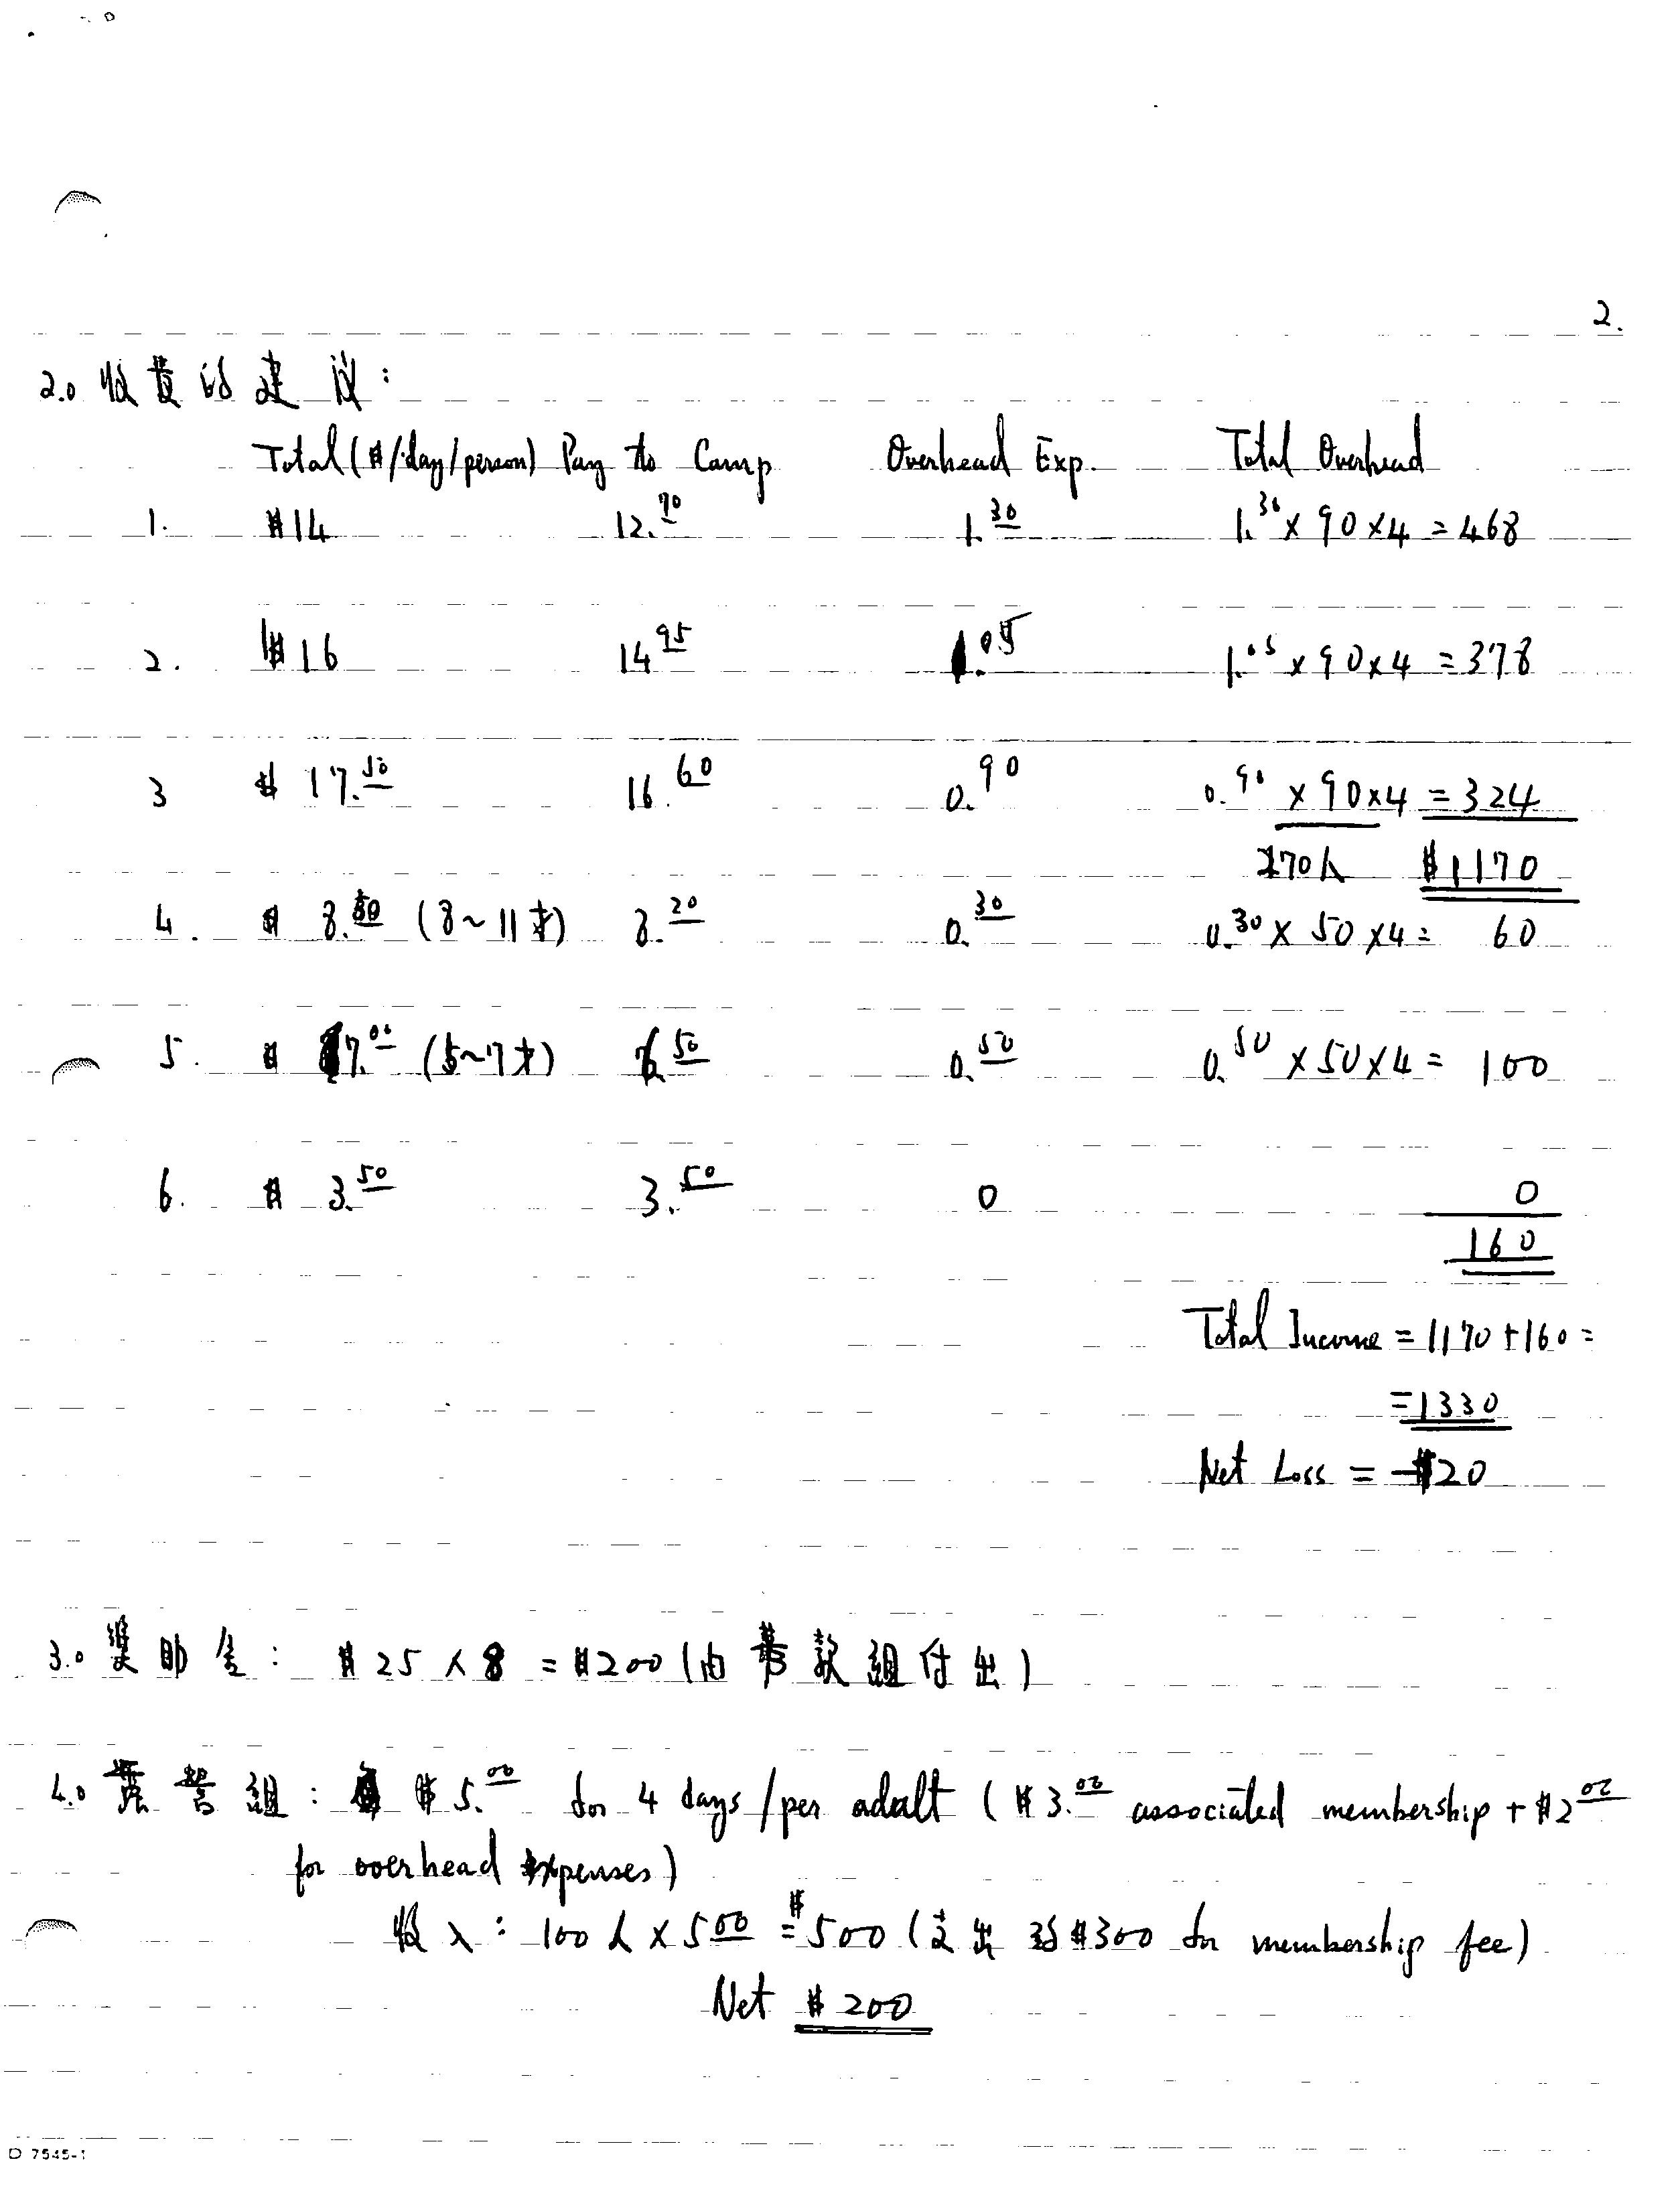 2.
2.0 收费的建议:
Total ($/day/person) Pay to Camp Overhead Exp. Total Overhead
1. $14 12.70 1.30 1.30 x 90 x 4 = 468
2. $16 14 95 1.05 1.05 x 90 x 4 = 378
3 $ 17.50 16.60 0.90 0.90 x 90 x 4 = 324
270人 $1170
4. $ 8.50 (8~11才) 8.20 0.30 0.30 x 50 x 4 = 60
5. $ 7.00 (5~7才) 6.50 0.50 0.50 x 50 x 4 = 100
6. $ 3.50 3.50 0 0
160
Total Income = 1170 + 160 =
= 1330
Net Loss = -$20
3.0 奖助金: $25 x 8 = $200 (由筹款組付出)
4.0 露营組: $5.00 for 4 days/per adult ($3.00 associated membership + $2 00
for overhead expenses)
收入: 100人 x 5 00 = $500 (支出 $300 for membership fee)
Net $200
D 7545-1